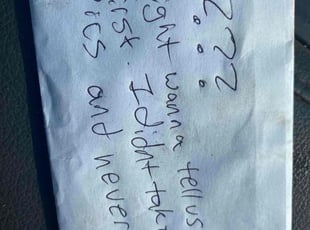 ???
ight wanna tell us
irst. I didnt tak
pics and never